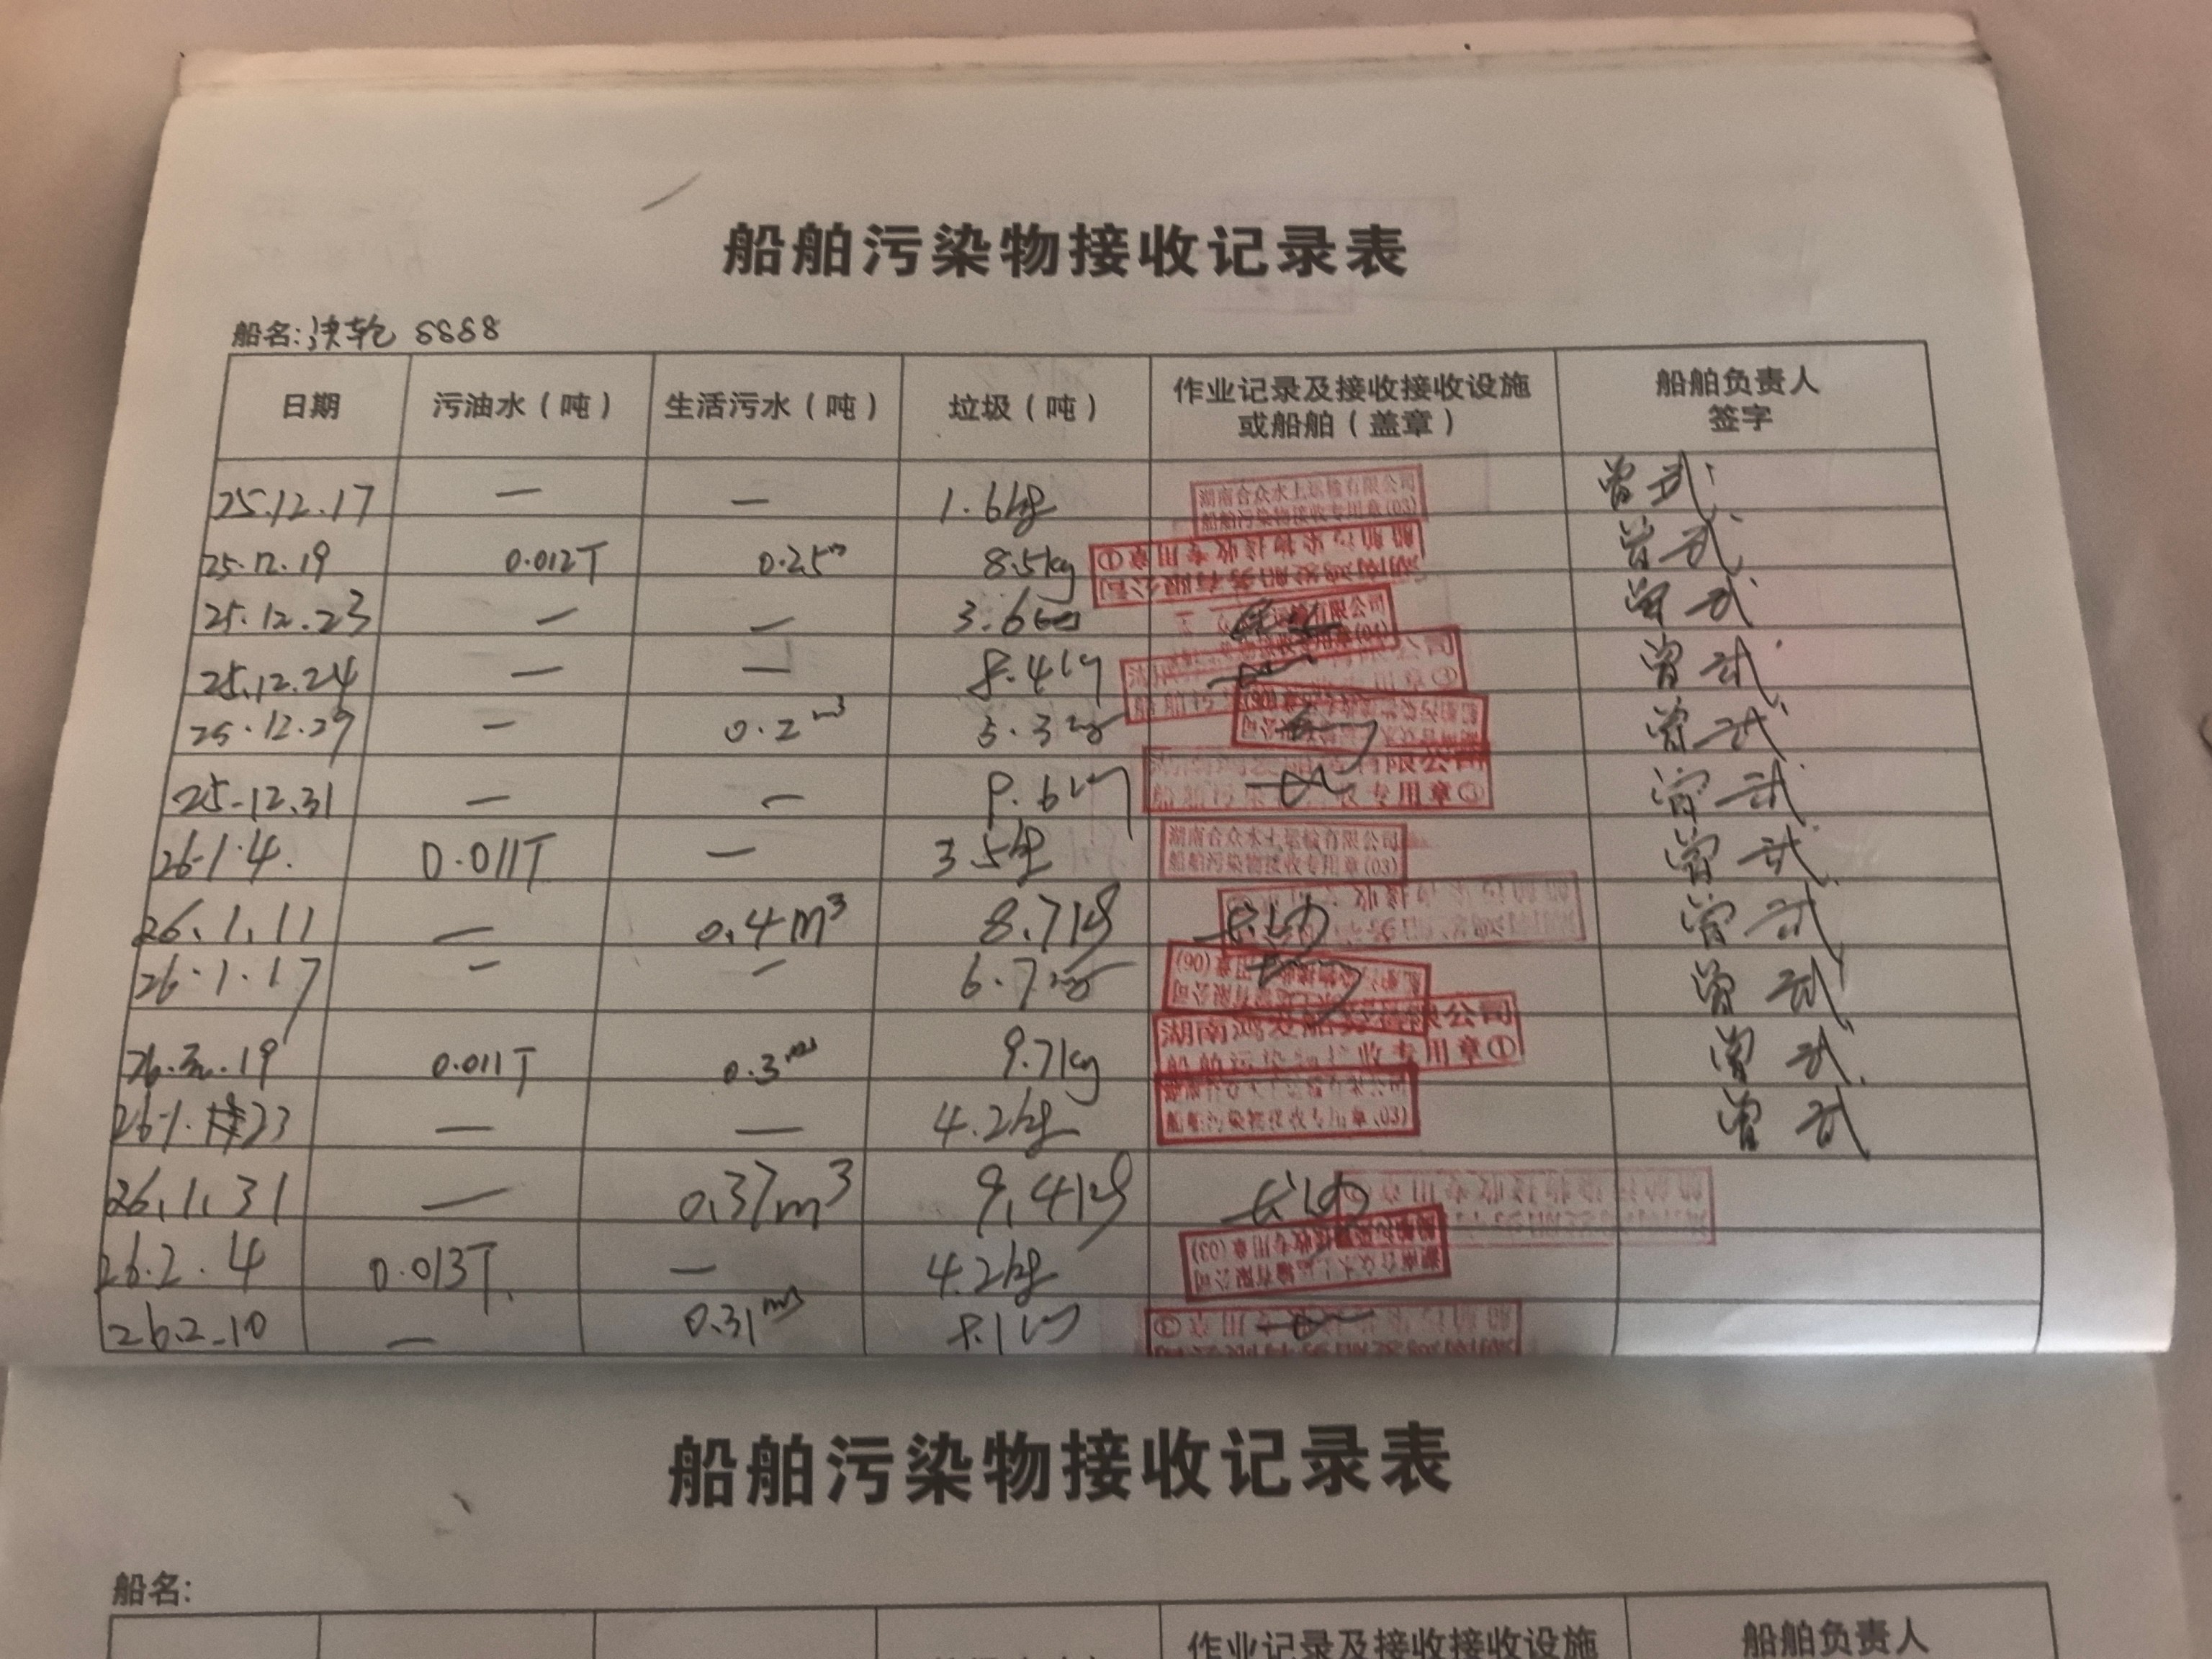 船舶污染物接收记录表
船名: 轮 8888
日期 污油水（吨） 生活污水（吨） 垃圾（吨） 作业记录及接收接收设施或船舶（盖章） 船舶负责人签字
25.12.17 — — 1.6kg 湖南合众水上运输有限公司 船舶污染物接收专用章(03) 曾武
25.12.19 0.012T 0.25m 8.5kg 湖南鸿发船务有限公司 船舶污染物接收专用章① 曾武
25.12.23 — — 3.6kg 运输有限公司 曾武
25.12.24 — — 8.4kg 有限公司 船舶污 专用章③ 曾武
25.12.29 — 0.2m³ 5.3kg 曾武
25.12.31 — — 8.6kg 有限公司 船舶污染 收专用章③ 曾武
26.1.4. 0.011T — 3.5kg 湖南合众水上运输有限公司 船舶污染物接收专用章(03) 曾武
26.1.11 — 0.4m³ 8.7kg 曾武
26.1.17 — — 6.7kg 曾武
26. .19 0.011T 0.3m³ 9.7kg 湖南鸿发船务有限公司 船舶污染物接收专用章① 曾武
26.1.23 — — 4.2kg 船舶污染物接收专用章(03) 曾武
26.1.31 — 0.37m³ 9.4kg
26.2.4 0.013T. — 4.2kg 湖南合众水上运输有限公司 船舶污染物接收专用章(03)
26.2.10 — 0.31m³ 8.1kg
船舶污染物接收记录表
船名:
作业记录及接收接收设施 船舶负责人